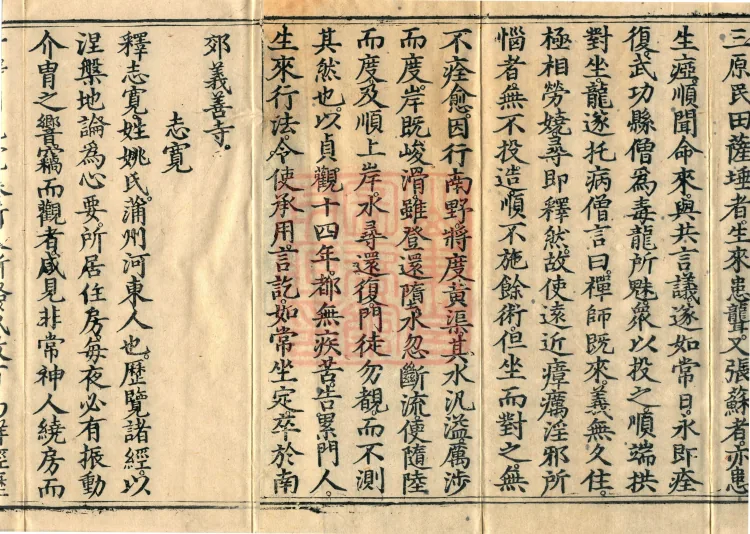 三原民田薩埵者。生來患聾。又張蘇者亦患
生瘂。順聞命來。與共言議。遂如常日。永即痊
復。武功縣僧。為毒龍所魅。衆以投之。順端拱
對坐。龍遂托病僧言曰。禪師既來。義無久住。
極相勞嬈。尋即釋然。故使遠近瘴癘淫邪所
惱者。無不投造。順不施餘術。但坐而對之。無
不痊愈。因行南野。將度黃渠。其水汎溢。厲涉
而度。岸既峻滑。雖登還隨水。忽斷流。便隨陸
而度。及順上岸。水尋還復。門徒勿覩。而不測
其然也。以貞觀十四年。都無疾苦。告累門人。
生來行法。令使承用。言訖。如常坐定。卒於南
郊義善寺。
志寬
釋志寬。姓姚氏。蒲州河東人也。歷覽諸經。以
涅槃地論為心要。所居住房。每夜必有振動
介胄之響。竊而觀者。咸見非常神人繞房而